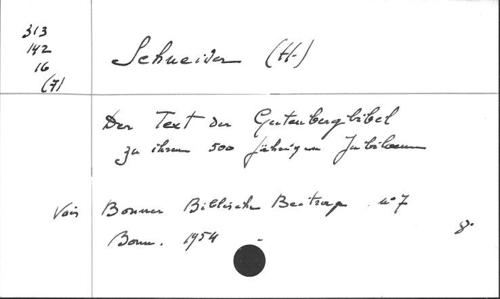 313
142
16
(7)
Schneider (H.)
Der Text der Gutenbergbibel
zu ihrem 500 jährigen Jubiläum
Voir Bonner Biblische Beiträge n° 7
Bonn. 1954